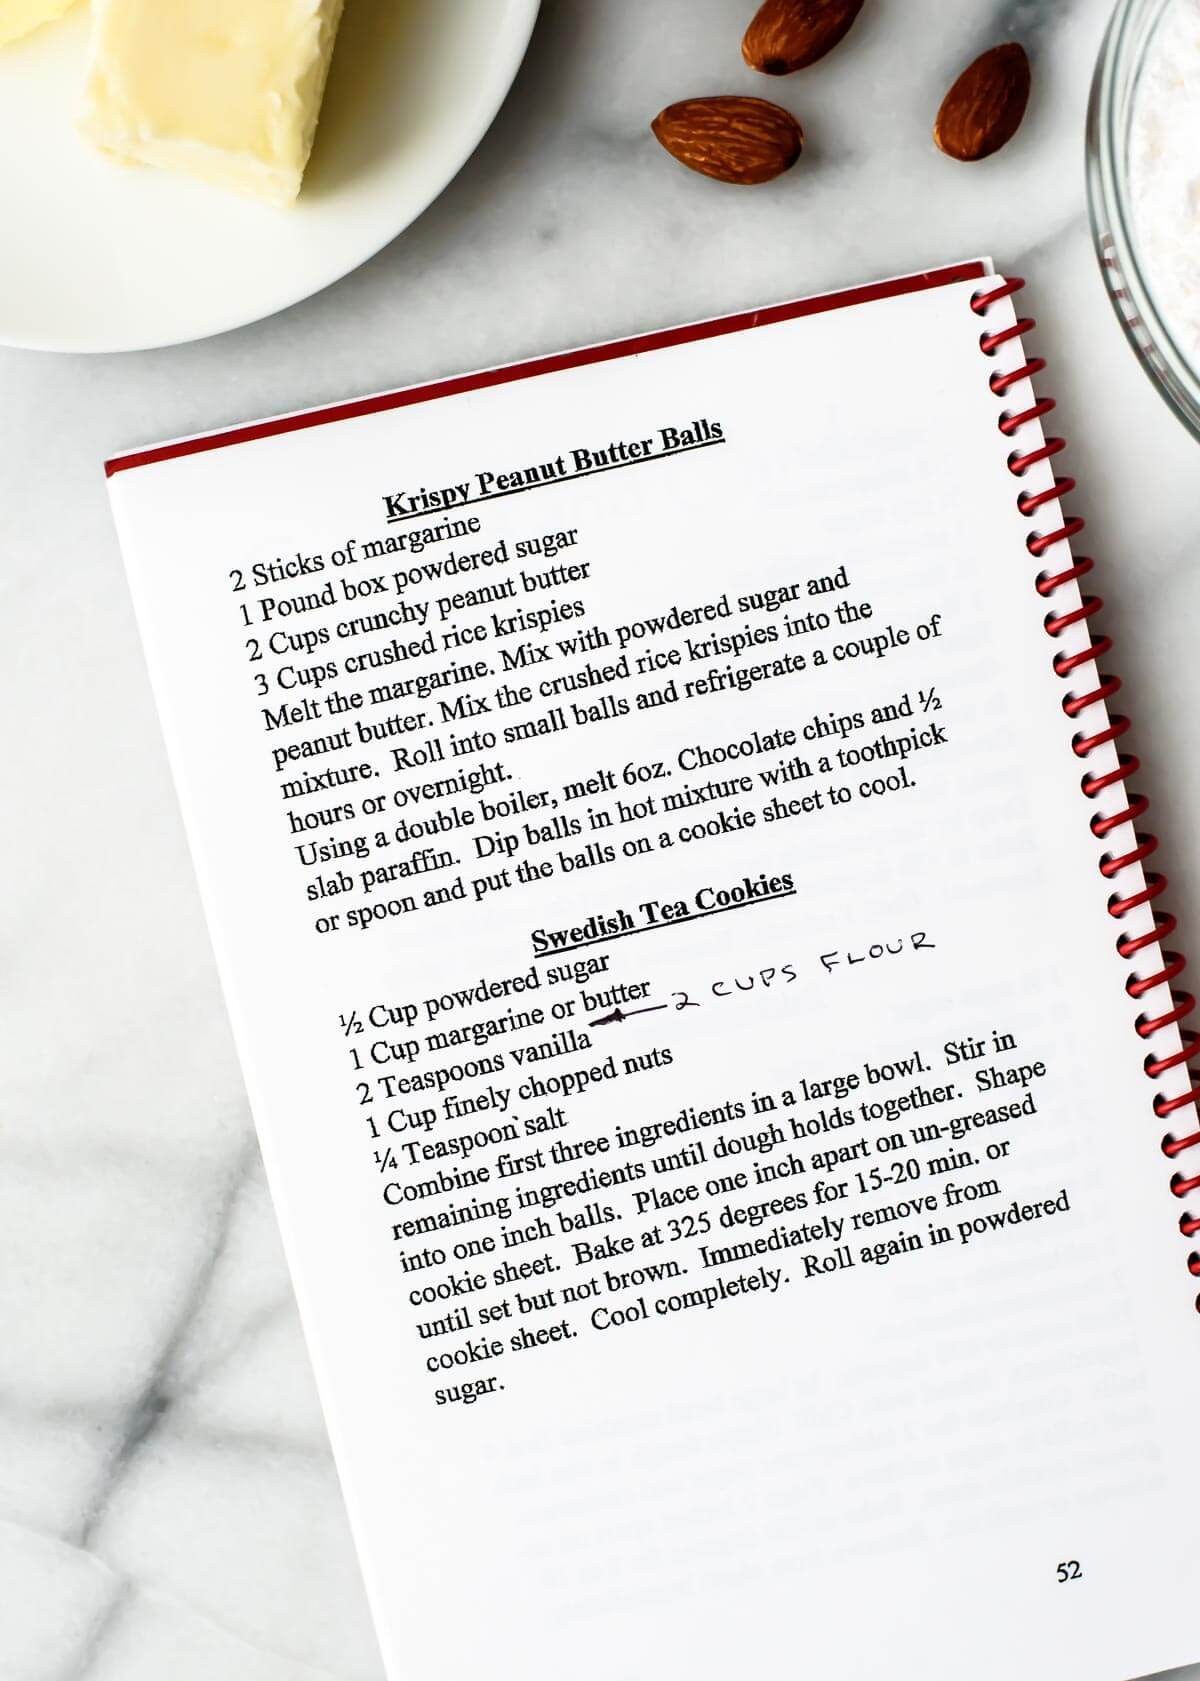 Krispy Peanut Butter Balls
2 Sticks of margarine
1 Pound box powdered sugar
2 Cups crunchy peanut butter
3 Cups crushed rice krispies
Melt the margarine. Mix with powdered sugar and
peanut butter. Mix the crushed rice krispies into the
mixture. Roll into small balls and refrigerate a couple of
hours or overnight.
Using a double boiler, melt 6oz. Chocolate chips and ½
slab paraffin. Dip balls in hot mixture with a toothpick
or spoon and put the balls on a cookie sheet to cool.
Swedish Tea Cookies
½ Cup powdered sugar
1 Cup margarine or butter
2 CUPS FLOUR
2 Teaspoons vanilla
1 Cup finely chopped nuts
¼ Teaspoon salt
Combine first three ingredients in a large bowl. Stir in
remaining ingredients until dough holds together. Shape
into one inch balls. Place one inch apart on un-greased
cookie sheet. Bake at 325 degrees for 15-20 min. or
until set but not brown. Immediately remove from
cookie sheet. Cool completely. Roll again in powdered
sugar.
52